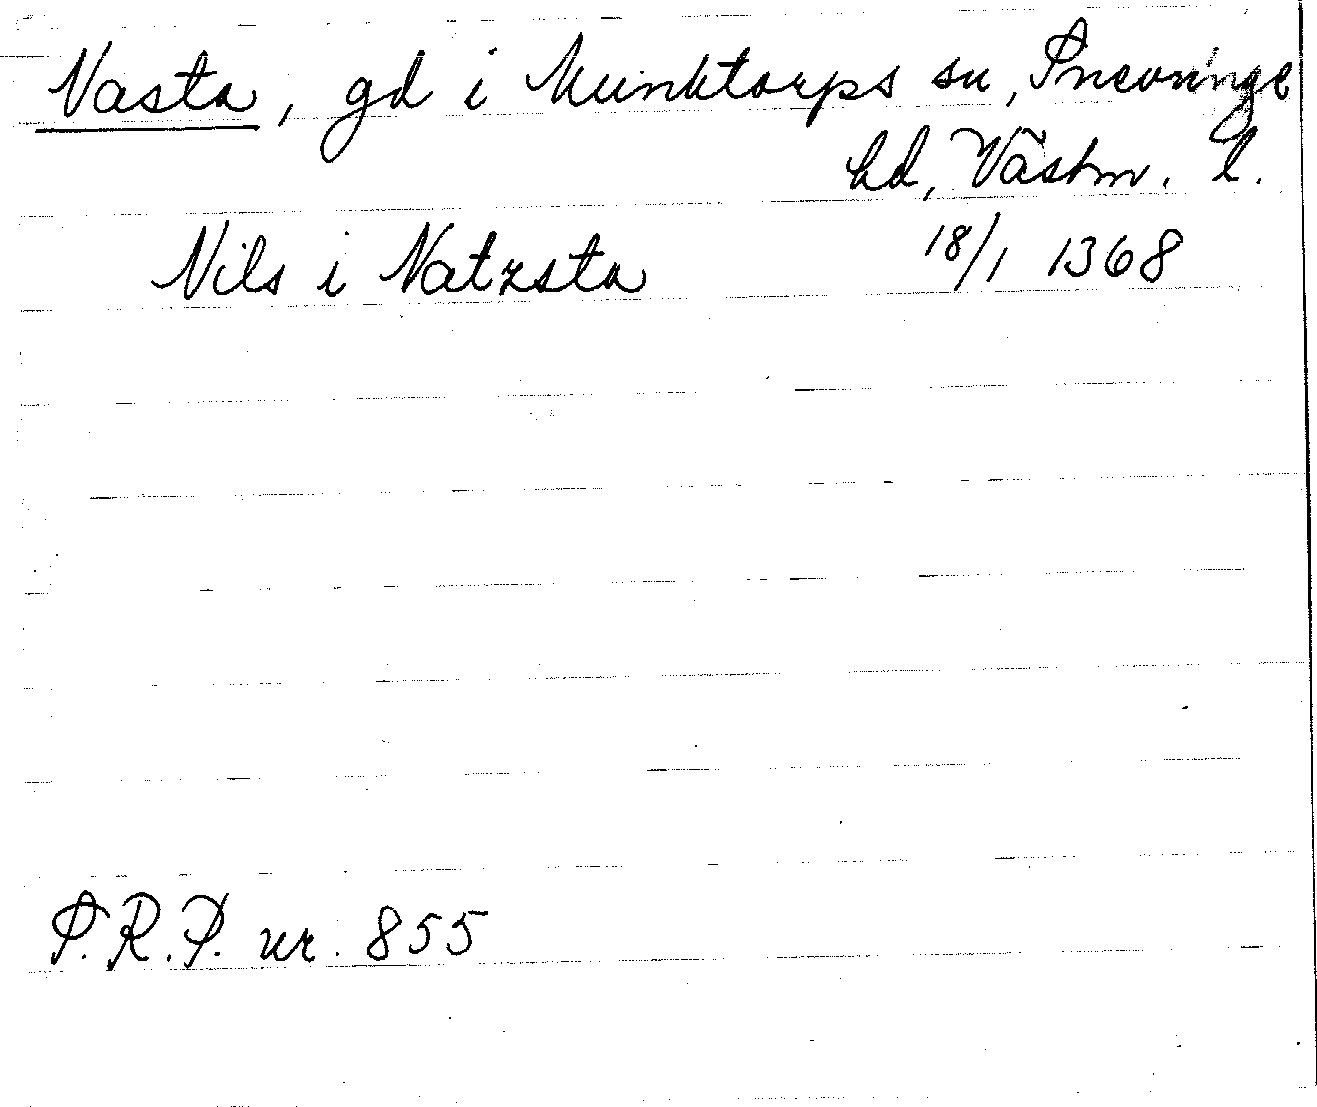 Nasta, gd i Munktorps sn, Snevringe
hd, Västm. l.
Nils i Natzsta 18/1 1368
P.R.P. nr. 855